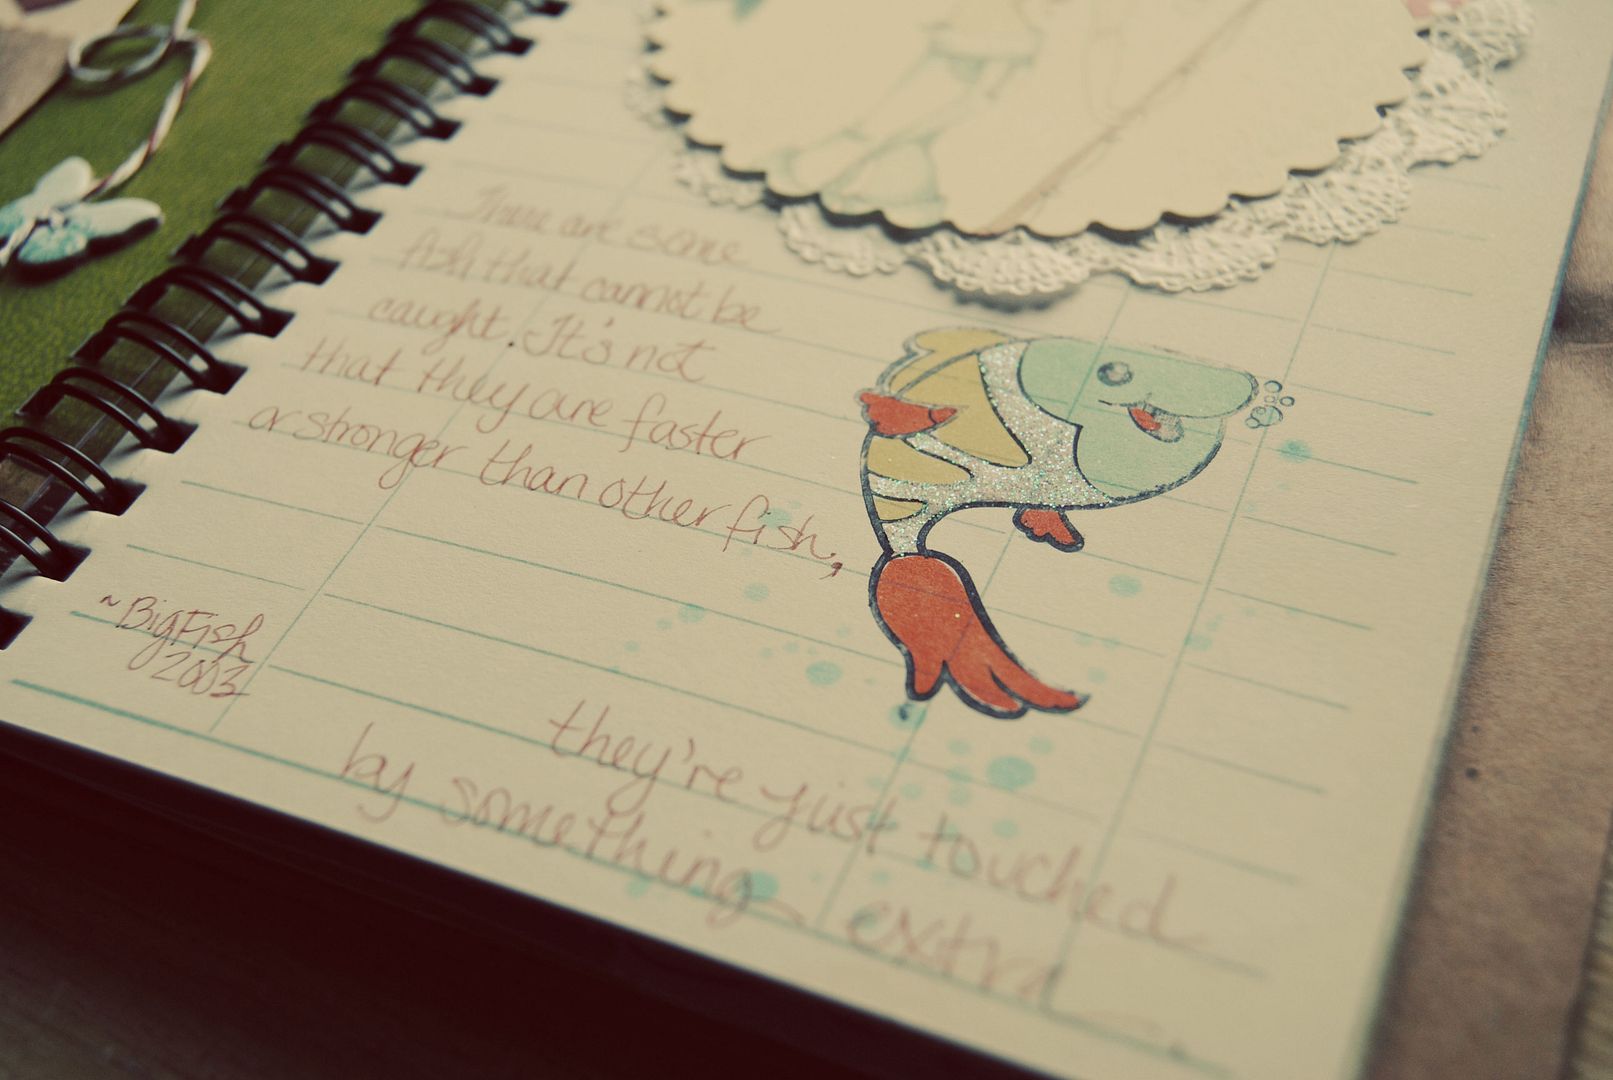 There are some
fish that cannot be
caught. It's not
that they are faster
or stronger than other fish,
~BigFish
2003
they're just touched
by something extra